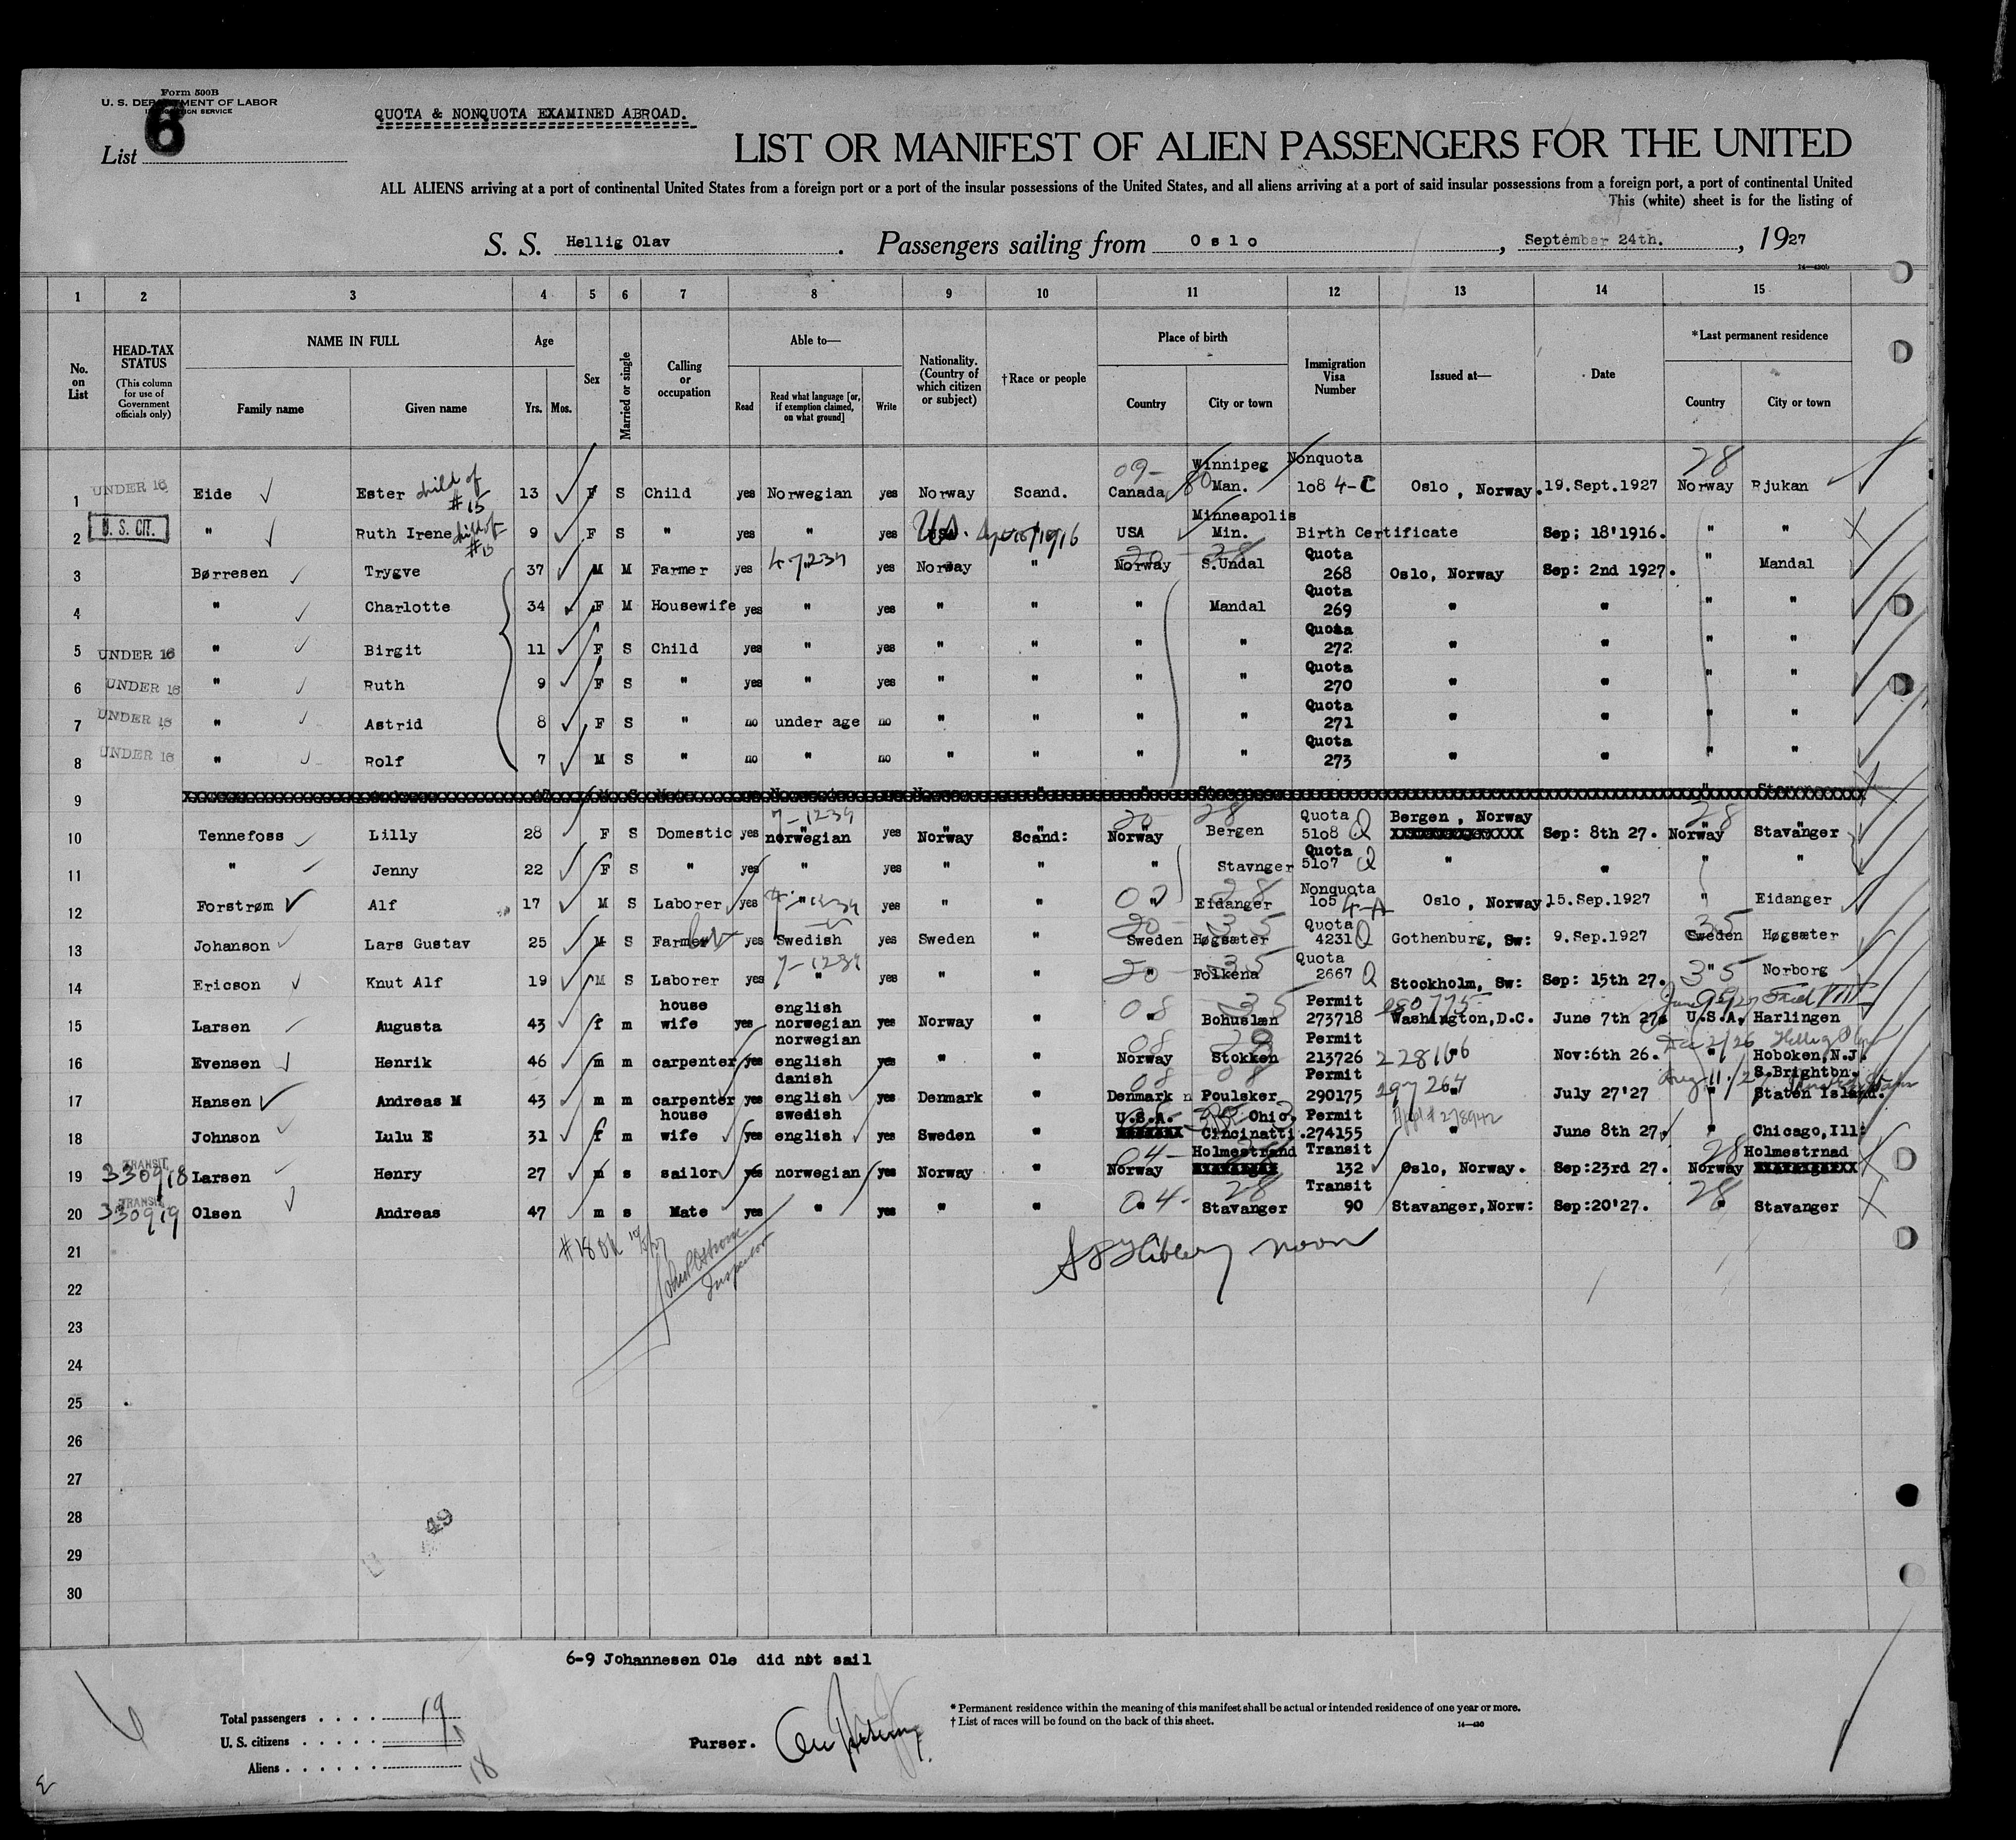 Form 500B
U. S. DEPARTMENT OF LABOR
IMMIGRATION SERVICE
6
List
QUOTA & NONQUOTA EXAMINED ABROAD.
LIST OR MANIFEST OF ALIEN PASSENGERS FOR THE UNITED
ALL ALIENS arriving at a port of continental United States from a foreign port or a port of the insular possessions of the United States, and all aliens arriving at a port of said insular possessions from a foreign port, a port of continental United
This (white) sheet is for the listing of
S. S. Hellig Olav . Passengers sailing from Oslo , September 24th. , 1927
1 2 3 4 5 6 7 8 9 10 11 12 13 14 15
No. on List
HEAD-TAX STATUS (This column for use of Government officials only)
NAME IN FULL Family name Given name
Age Yrs. Mos.
Sex
Married or single
Calling or occupation
Able to— Read Read what language [or, if exemption claimed, on what ground] Write
Nationality. (Country of which citizen or subject)
†Race or people
Place of birth Country City or town
Immigration Visa Number
Issued at—
Date
*Last permanent residence Country City or town
1 UNDER 16 Eide Ester child of #15 13 F S Child yes Norwegian yes Norway Scand. 09- Canada Winnipeg Man. Nonquota 108 4-C Oslo, Norway. 19.Sept.1927 28 Norway Rjukan
2 U. S. CIT. " Ruth Irene child of #15 9 F S " yes " yes USA USA Minneapolis Min. Birth Certificate Sep; 18'1916. " "
3 Børresen Trygve 37 M M Farmer yes " yes Norway " Norway S.Undal Quota 268 Oslo, Norway Sep: 2nd 1927. " Mandal
4 " Charlotte 34 F M Housewife yes " yes " " " Mandal Quota 269 " " " "
5 UNDER 16 " Birgit 11 F S Child yes " yes " " " " Quota 272 " " " "
6 UNDER 16 " Ruth 9 F S " yes " yes " " " " Quota 270 " " " "
7 UNDER 16 " Astrid 8 F S " no under age no " " " " Quota 271 " " " "
8 UNDER 16 " Rolf 7 M S " no " no " " " " Quota 273 " " " "
9
10 Tennefoss Lilly 28 F S Domestic yes norwegian yes Norway Scand: 20- Norway 28 Bergen Quota 5108 Q Bergen, Norway Sep: 8th 27. 28 Norway Stavanger
11 " Jenny 22 F S " yes " yes " " " Stavnger Quota 5107 Q " " " "
12 Forstrøm Alf 17 M S Laborer yes " yes " " " 28 Eidanger Nonquota 105 4-A Oslo, Norway 15.Sep.1927 " Eidanger
13 Johanson Lars Gustav 25 M S Farmer yes Swedish yes Sweden " 20- Sweden 35 Høgsæter Quota 4231 Q Gothenburg, Sw: 9.Sep.1927 35 Sweden Høgsæter
14 Ericson Knut Alf 19 M S Laborer yes " yes " " 20- " 35 Folkena Quota 2667 Q Stockholm, Sw: Sep: 15th 27. 35 " Norborg
15 Larsen Augusta 43 f m house wife yes english norwegian yes Norway " 08 " 35 Bohuslæn Permit 273718 Washington,D.C. June 7th 27. U.S.A. Harlingen
16 Evensen Henrik 46 m m carpenter yes norwegian english yes " " 08 Norway 28 Stokken Permit 213726 228166 " Nov:6th 26. " Hoboken,N.J.
17 Hansen Andreas M 43 m m carpenter yes danish english yes Denmark " 08 Denmark 08 Poulsker Permit 290175 197264 " July 27'27 " S.Brighton. Staten Island.
18 Johnson Lulu E 31 f m house wife yes swedish english yes Sweden " U.S.A. Ohio Cincinatti. Permit 274155 " June 8th 27. " Chicago,Ill:
19 TRANSIT 330918 Larsen Henry 27 m s sailor yes norwegian yes Norway " 04- Norway Holmestrand Transit 132 Oslo, Norway. Sep:23rd 27. 28 Norway Holmestrnad
20 TRANSIT 330919 Olsen Andreas 47 m s Mate yes " yes " " 04- " 28 Stavanger Transit 90 Stavanger,Norw: Sep:20'27. 28 " Stavanger
21 #18 OK
22 Inspector
23
24
25
26
27
28 49
29
30
6-9 Johannesen Ole did not sail
Total passengers . . . . 19
U. S. citizens . . . . . 1
Aliens . . . . . . 18
Purser.
* Permanent residence within the meaning of this manifest shall be actual or intended residence of one year or more.
† List of races will be found on the back of this sheet.
14—430